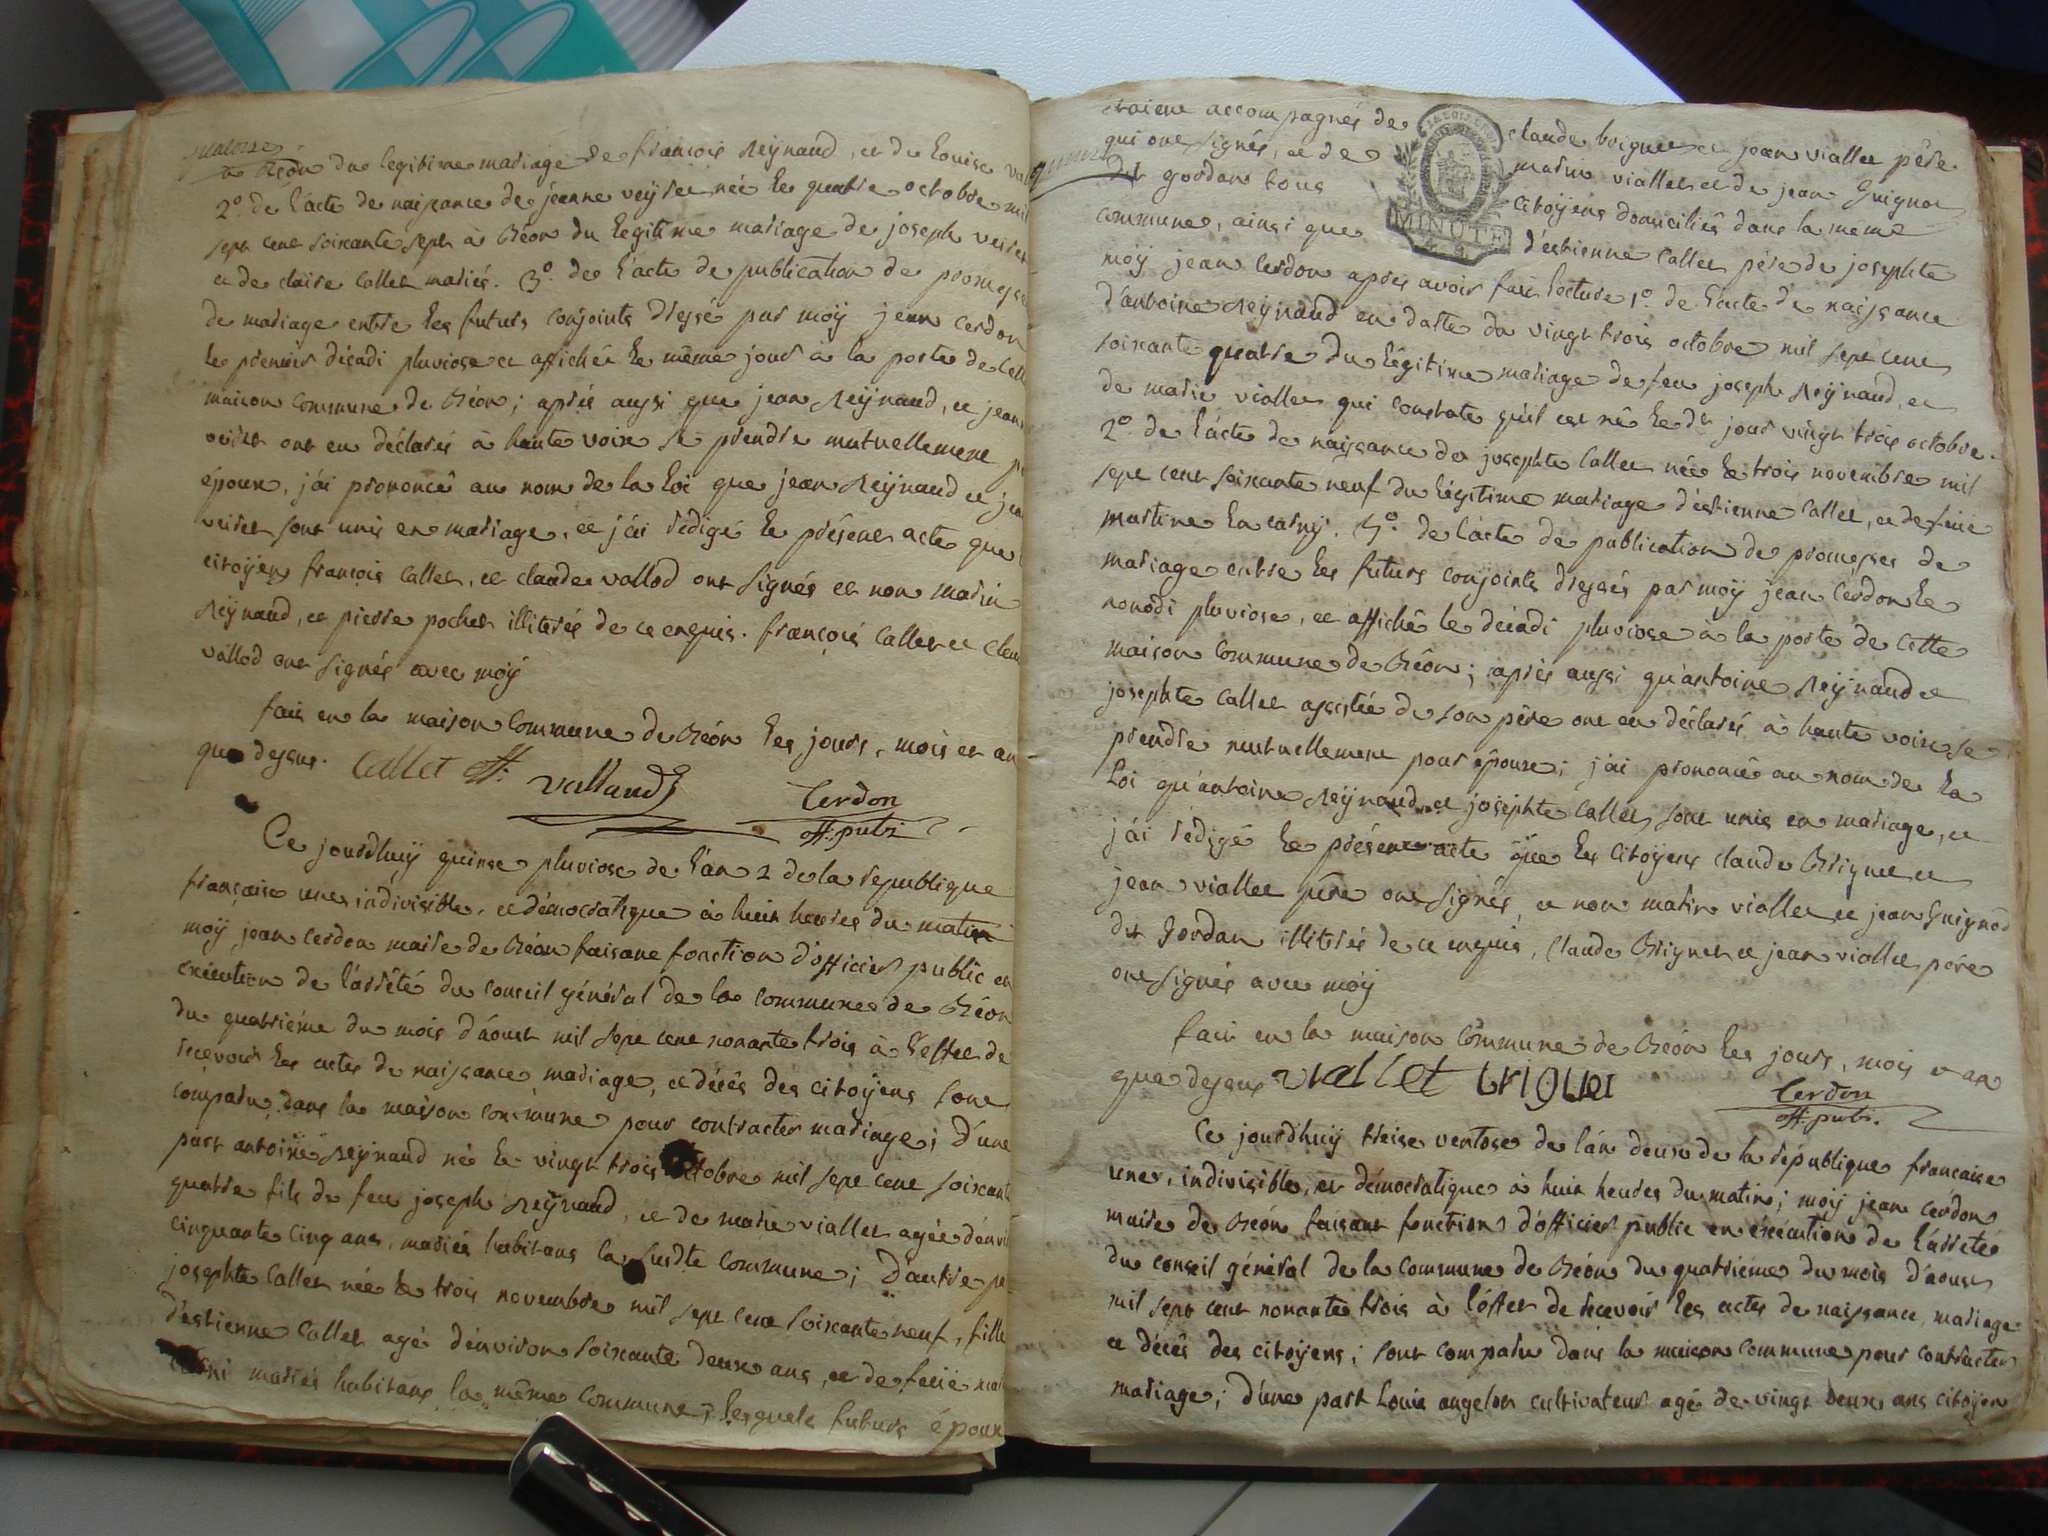 quatorze
à Béon du legitime mariage de françois Reÿnaud, et de Louise
2.o de l'acte de naissance de jeanne veyret née le quatre octobre mil
sept cent soixante sept à Béon du legitime mariage de joseph veiret
et de claire Callet mariés. 3.o de l'acte de publication de promess
de mariage entre les futurs conjoints dressé par moÿ jean Cerdon
le premier décadi pluviose et affichée le même jour à la porte de cette
maison commune de Béon; après aussi que jean Reÿnaud, et jeanne
veiret ont eu déclaré à haute voix se prendre mutuellement p
époux, j'ai prononcé au nom de la loi que jean Reÿnaud et jea
veiret sont unis en mariage, et j'ai rédigé le présent acte que
citoÿens françois Callet, et claude vallod ont signés et non matin
Reÿnaud, et pierre pochet illiterés de ce enquis. françois Callet et clau
vallod ont signés avec moÿ
fait en la maison Commune de Béon les jours, mois et an
que dessus. Callet off. Vallaud Cerdon
off. publ.
Ce jourdhuÿ quinse pluviose de l'an 2 de la republique
française une, indivisible, et démocratique à huit heures du matin
moÿ jean Cerdon maire de Béon faisant fonction d'officier public en
exécution de l'arrêté du conseil général de la commune de Béon
du quatriéme du mois d'aoust mil sept cent nonante trois à l'effet de
recevoir les actes de naissance mariage, et décès des citoÿens sont
comparu dans la maison commune pour contracter mariage; D'une
part antoine Reÿnaud né le vingt trois octobre mil sept cent soixante
quatre fils de feu joseph Reÿnaud, et de marie viallet agée d'envi
cinquante cinq ans, mariés habitans la susdte commune; D'autre pa
josephte Callet née le trois novembre mil sept cent soixante neuf, fille
d'estienne Callet agé d'environ soixante deux ans, et de feüe mar
mariés habitans la même commune; lesquels futurs époux
étaient accompagnés de claude brignet et jean viallet père
qui ont signés, et de matin viallet et de jean Guignod
dit gordan tous citoÿens domiciliés dans la meme
commune, ainsi que d'estienne Callet père de josephte
MINUTE
moÿ jean Cerdon après avoir fait lecture 1.o de l'acte de naissance
d'antoine Reÿnaud en datte du vingt trois octobre mil sept cent
soixante quatre du légitime mariage de feu joseph Reÿnaud, et
de marie viallet qui constate qu'il est né le dt jour vingt trois octobre.
2.o de l'acte de naissance de josephte Callet née le trois novembre mil
sept cent soixante neuf du légitime mariage d'estienne Callet, et de feüe
martine 3.o de l'acte de publication de promesses de
mariage entre les futurs conjoints dressés par moÿ jean Cerdon le
nonodi pluviose, et affiché le décadi pluviose à la porte de cette
maison Commune de Béon; après aussi qu'antoine Reÿnaud et
josephte Callet assistée de son père ont eu déclaré à haute voix se
prendre mutuellement pour époux; j'ai prononcé au nom de la
loi qu'antoine Reÿnaud et josephte Callet sont unis en mariage, et
j'ai rédigé le présent acte que les citoÿens claude Brignet et
jean viallet père ont signés, et non matin viallet et jean Guignod
dit Jordan illiterés de ce enquis, Claude Brignet et jean viallet père
ont signés avec moÿ
fait en la maison Commune de Béon les jours, mois et an
que dessus viallet brignet Cerdon
off. publ.
Ce jourdhuÿ treise ventose de l'an deux de la république française
une, indivisible, et démocratique à huit heures du matin; moÿ jean Cerdon
maire de Béon faisant fonction d'officier public en exécution de l'arrêté
du conseil général de la commune de Béon du quatriéme du mois d'aoust
mil sept cent nonante trois à l'effet de recevoir les actes de naissance, mariage
et décès des citoÿens; sont comparu dans la maison commune pour contracter
mariage; d'une part Louis angelot cultivateur agé de vingt deux ans citoÿen